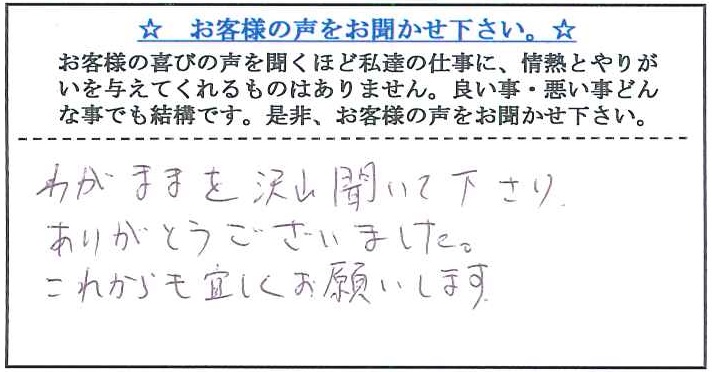 ☆　お客様の声をお聞かせ下さい。☆
お客様の喜びの声を聞くほど私達の仕事に、情熱とやりが
いを与えてくれるものはありません。良い事・悪い事どん
な事でも結構です。是非、お客様の声をお聞かせ下さい。
わがままを沢山聞いて下さり
ありがとうございました。
これからも宜しくお願いします